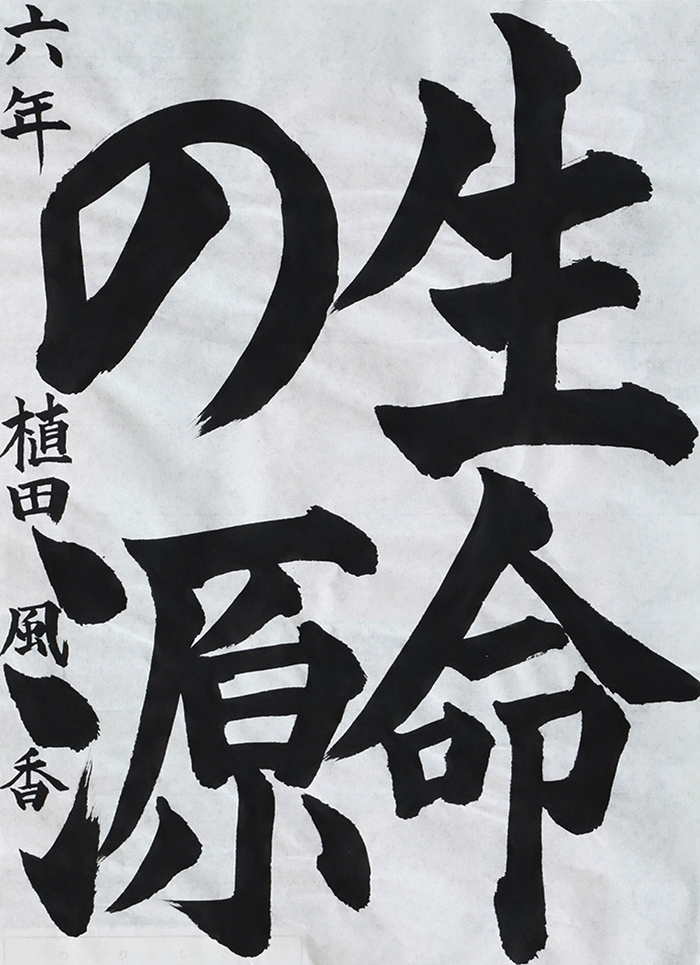 生命
の源
六年 植田風香